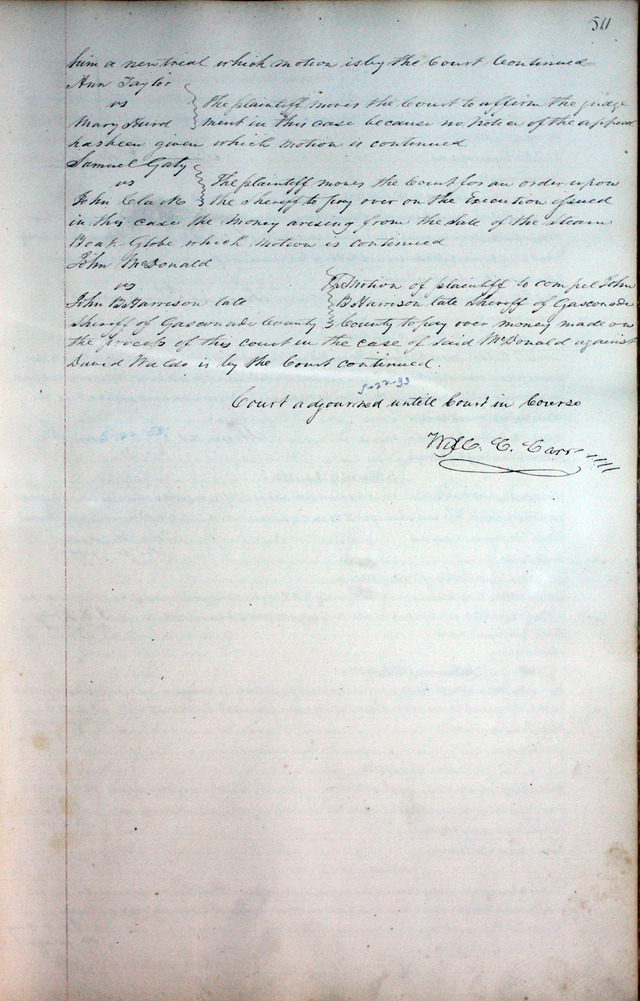 511
him a new trial which motion is by the Court Continued
Ann Taylor
vs
The plaintiff moves the Court to affirm the judge
Mary Hurd
ment in this case because no notice of the appeal
has been given which motion is continued
Samuel Gaty
vs
The plaintiff moves the Court for an order upon
John Clark
the Sheriff to pay over on the execution issued
in this case the money arising from the sale of the steam
Boat Globe which motion is continued
John McDonald
vs
Motion of plaintiff to compel John
John B Harrison late
B Harrison late Sheriff of Gasconade
Sheriff of Gasconade County
County to pay over money made on
the process of this court in the case of said McDonald against
David Waldo is by the Court continued.
5-22-33
Court adjourned untill Court in Course
Wm C. Carr